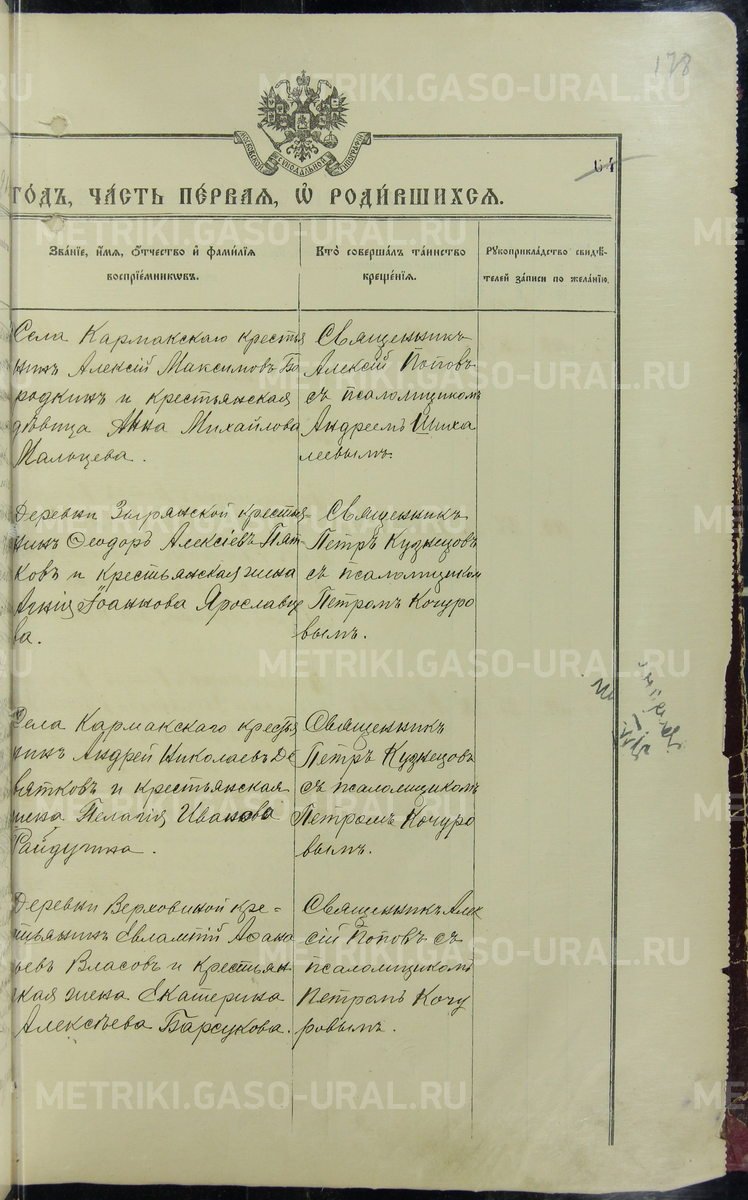 178
МОСКОВСКОЙ СѴНОДАЛЬНОЙ ТИПОГРАФІИ
64
ГОДЪ, ЧАСТЬ ПЕРВАЯ, Ѽ РОДИВШИХСЯ.
Званіе, имя, отчество и фамилія
воспріемниковъ.
Кто совершалъ таинство
крещенія.
Рукоприкладство свидѣ-
телей записи по желанію.
Села Кармакскаго кресть
нинъ Алексій Максимовъ Бо
родкинъ и крестьянская
дѣвица Анна Михайлова
Мальцева.
Священникъ
Алексій Поповъ
съ псаломщикомъ
Андреемъ Шиха
леевымъ.
Деревни Зырянской крестья
нинъ Ѳеодоръ Алексіевъ Пят
ковъ и крестьянская жена
Іоаннова Ярославце
ва.
Священникъ
Петръ Кузнецовъ
съ псаломщиком
Петромъ Кочуро
вымъ.
Села Кармакскаго кресть
нинъ Андрей Николаевъ Де
вятковъ и крестьянская
жена Пелагія Иванова
Священникъ
Петръ Кузнецовъ
съ псаломщикомъ
Петромъ Кочуро
вымъ.
Деревни Верховиной кре-
стьянинъ Евлампій Аѳана
ьевъ Власовъ и крестьян
кая жена Екатерина
Алексѣева Барсукова.
Священникъ Алек
сій Поповъ съ
псаломщикомъ
Петромъ Кочу
ровымъ.
METRIKI.GASO-URAL.RU